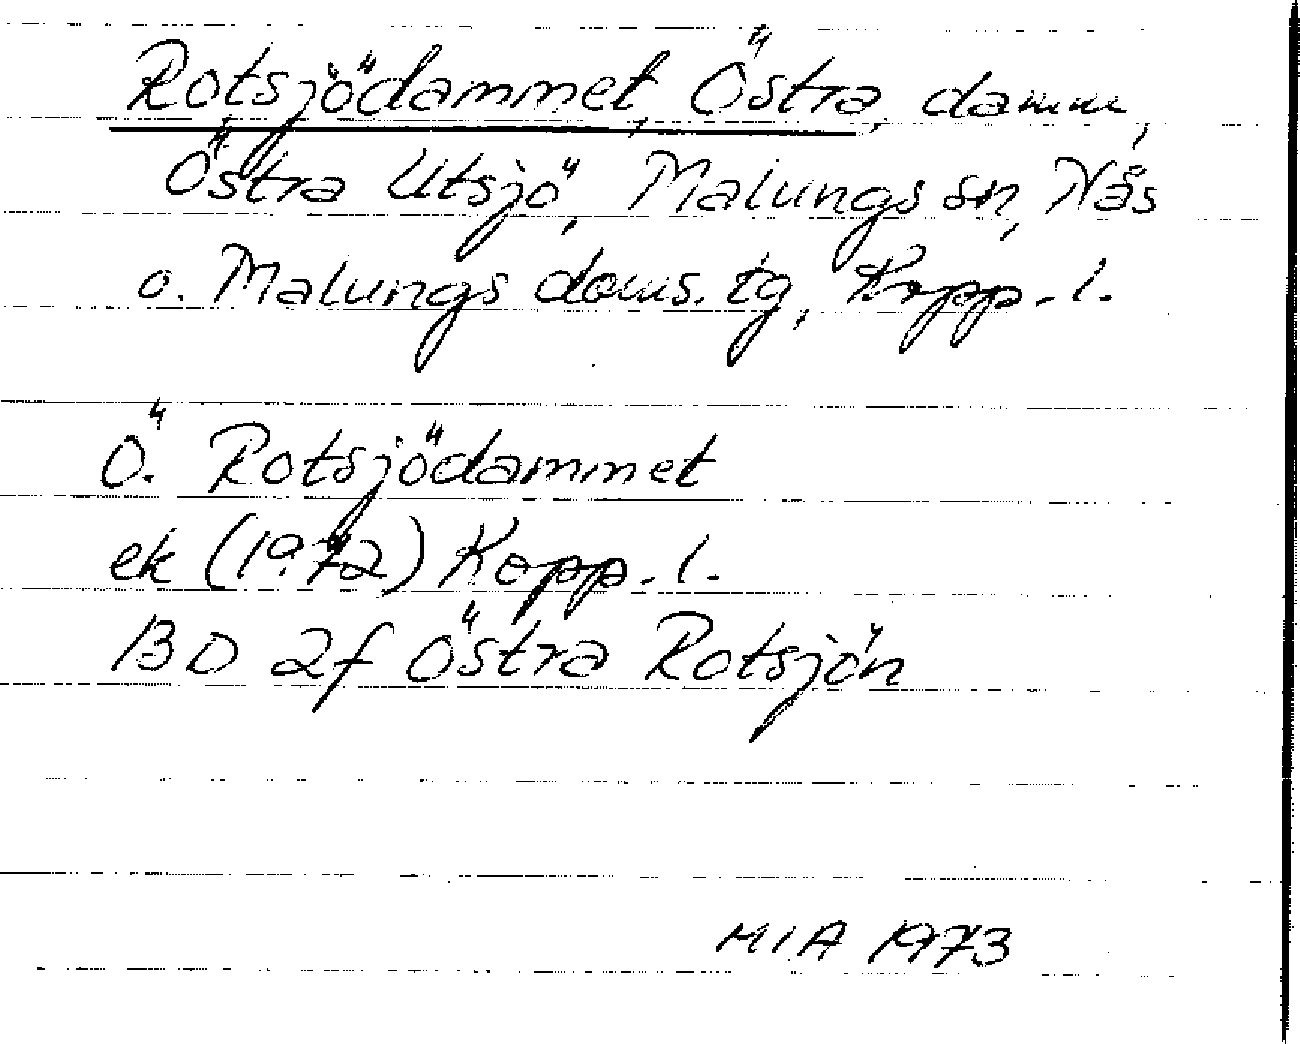 Rotsjödammet, Östra, damm,
Östra Utsjö, Malungs sn, Nås
o. Malungs doms. tg, Kopp. l.
Ö. Rotsjödammet
ek (1972) Kopp. l.
BD 2f Östra Rotsjön
MIA 1973